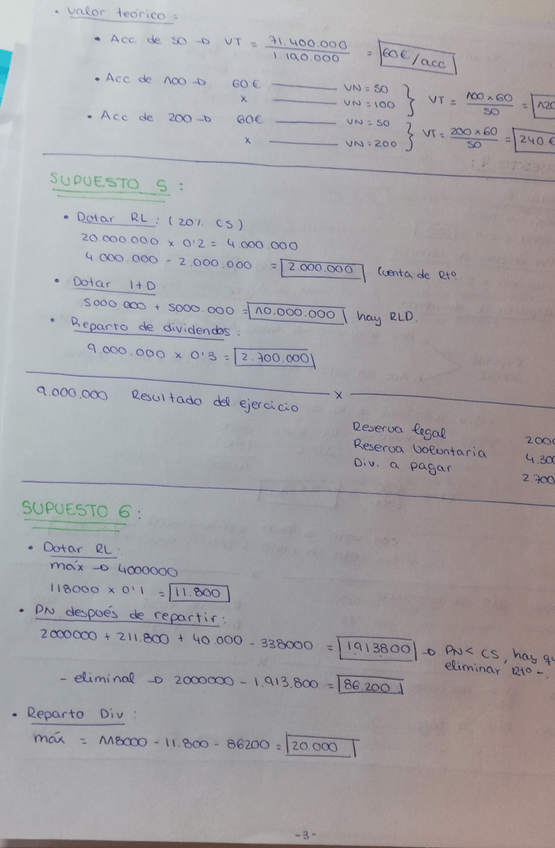 • Valor teórico:
• Acc de 50 → VT = 71.400.000 / 1.190.000 = 60€/acc
• Acc de 100 → 60€ ——— VN = 50
x ——— VN = 100 } VT = 100 x 60 / 50 = 120
• Acc de 200 → 60€ ——— VN = 50
x ——— VN = 200 } VT = 200 x 60 / 50 = 240 €
SUPUESTO 5:
• Dotar RL: (20% CS)
20.000.000 x 0'2 = 4.000.000
4.000.000 - 2.000.000 = 2.000.000 Cuenta de Rtº
• Dotar I+D
5000.000 + 5000.000 = 10.000.000 hay RLD.
• Reparto de dividendos:
9.000.000 x 0'3 = 2.700.000
——— x ———
9.000.000 Resultado del ejercicio
Reserva legal 2000
Reserva Voluntaria 4.300
Div. a pagar 2.700
SUPUESTO 6:
• Dotar RL:
máx → 4000000
118000 x 0'1 = 11.800
• PN después de repartir:
2000000 + 211.800 + 40.000 - 338000 = 1913800 → PN < CS, hay qu
eliminar Rtº -.
- eliminal → 2000000 - 1.913.800 = 86.200
• Reparto Div:
máx = 118000 - 11.800 - 86200 = 20.000
-3-